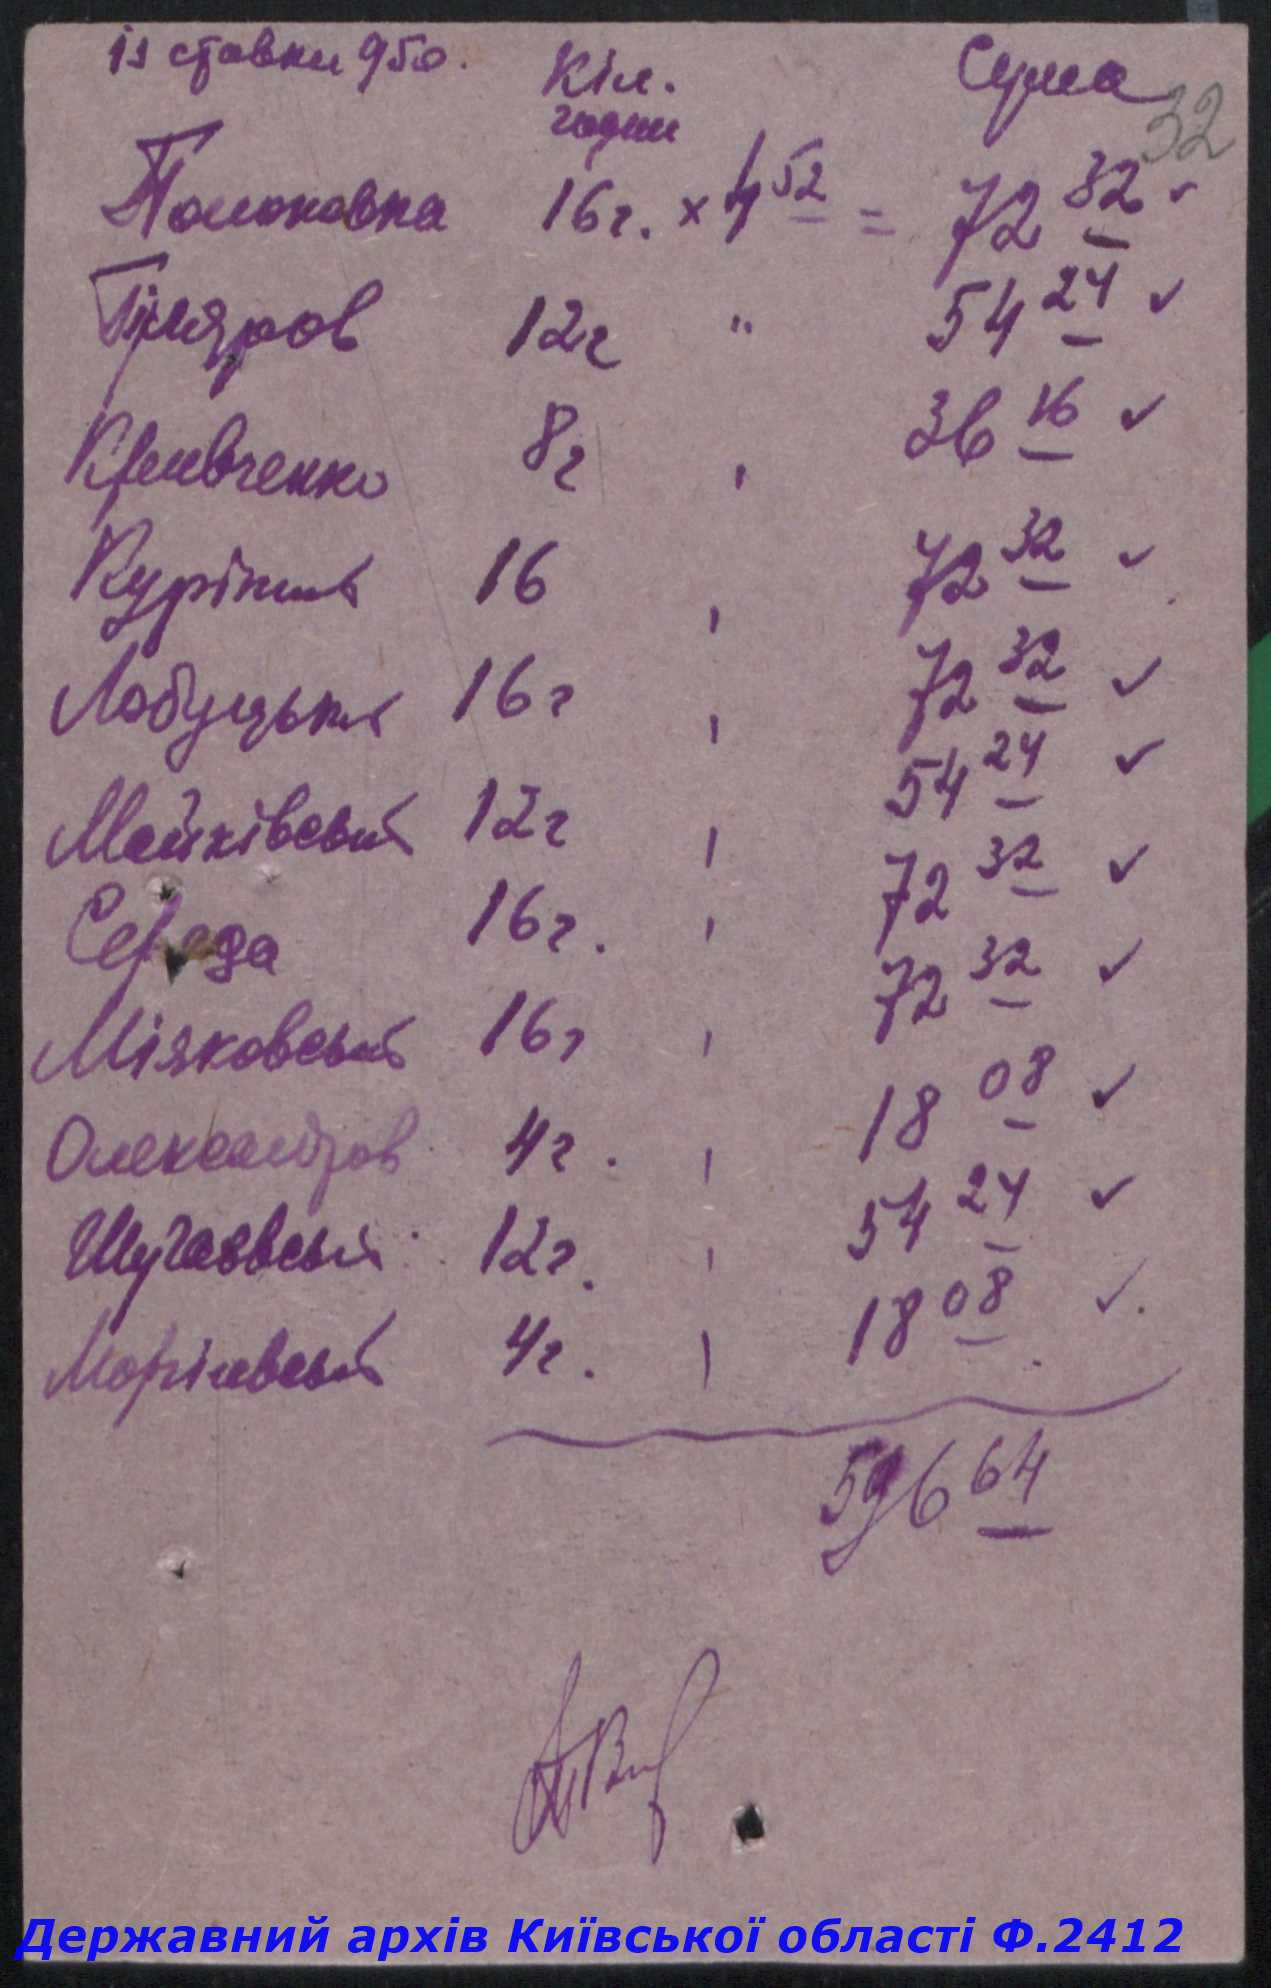 із ставки 950. Кіл. Сума
годин 32
Полоновка 16г. × 4 52 = 72 32 ✓
Гіляров 12г " 54 24 ✓
Кривченко 8г " 36 16 ✓
Курінний 16 " 72 32 ✓
Лобуцький 16г " 72 32 ✓
Мачківський 12г " 54 24 ✓
Середа 16г. " 72 32 ✓
Міяковський 16г " 72 32 ✓
Олександров 4г. " 18 08 ✓
12г. " 54 24 ✓
4г. " 18 08 ✓
596 64
Державний архів Київської області Ф.2412